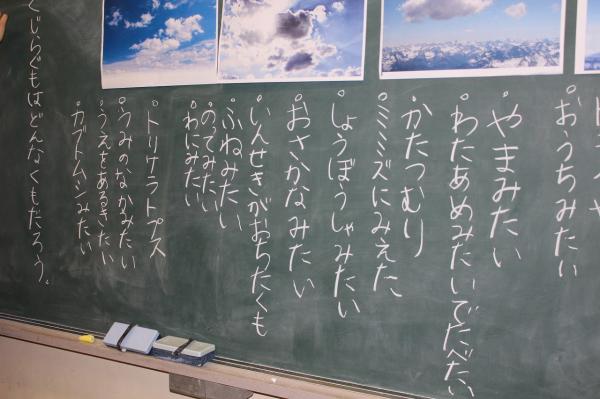 。おうちみたい
。やまみたい
。わたあめみたいでたべたい
。かたつむり
。ミミズにみえた、
。しょうぼうしゃみたい
。おさかなみたい
。いんせきがおちたくも
。ふねみたい
。のってみたい
。わにみたい
。トリケラトプス
。うみのなかみたい
。うえをあるきたい
。カブトムシみたい
くじらぐもはどんなくもだろう。